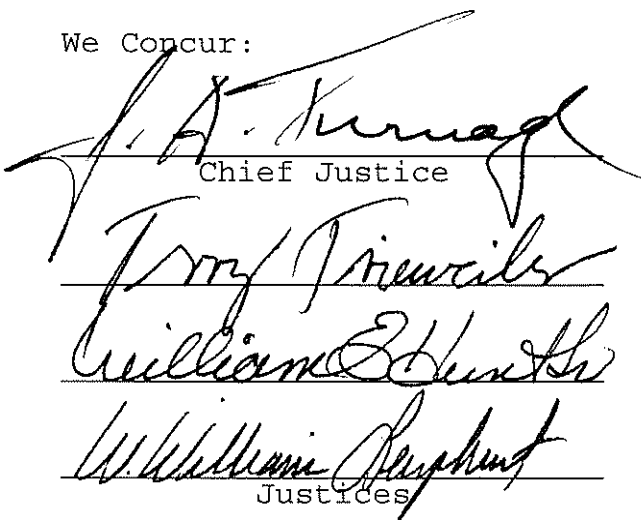 We Concur:
J. A. Turnage
Chief Justice
Terry Trieweiler
William E Hunt Sr
W. William Leaphart
Justices